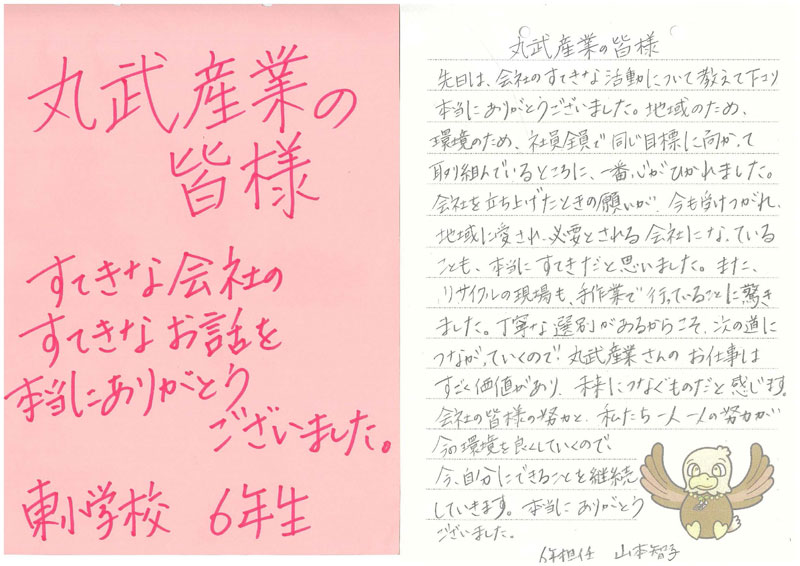 丸武産業の
皆様
すてきな会社の
すてきなお話を
本当にありがとう
ございました。
東小学校 6年生
丸武産業の皆様
先日は、会社のすてきな活動について教えて下さり
本当にありがとうございました。地域のため、
環境のため、社員全員で同じ目標に向かって
取り組んでいるところに、一番心がひかれました。
会社を立ち上げたときの願いが、今も受けつがれ、
地域に愛され、必要とされる会社になっている
ことも、本当にすてきだと思いました。また、
リサイクルの現場も、手作業で行っていることに驚き
ました。丁寧な選別があるからこそ、次の道に
つながっていくので、丸武産業さんのお仕事は
すごく価値があり、未来につなぐものだと感じます。
会社の皆様の努力と、私たち一人一人の努力が
今の環境を良くしていくので、
今、自分にできることを継続
していきます。本当にありがとう
ございました。
6年担任 山本智子